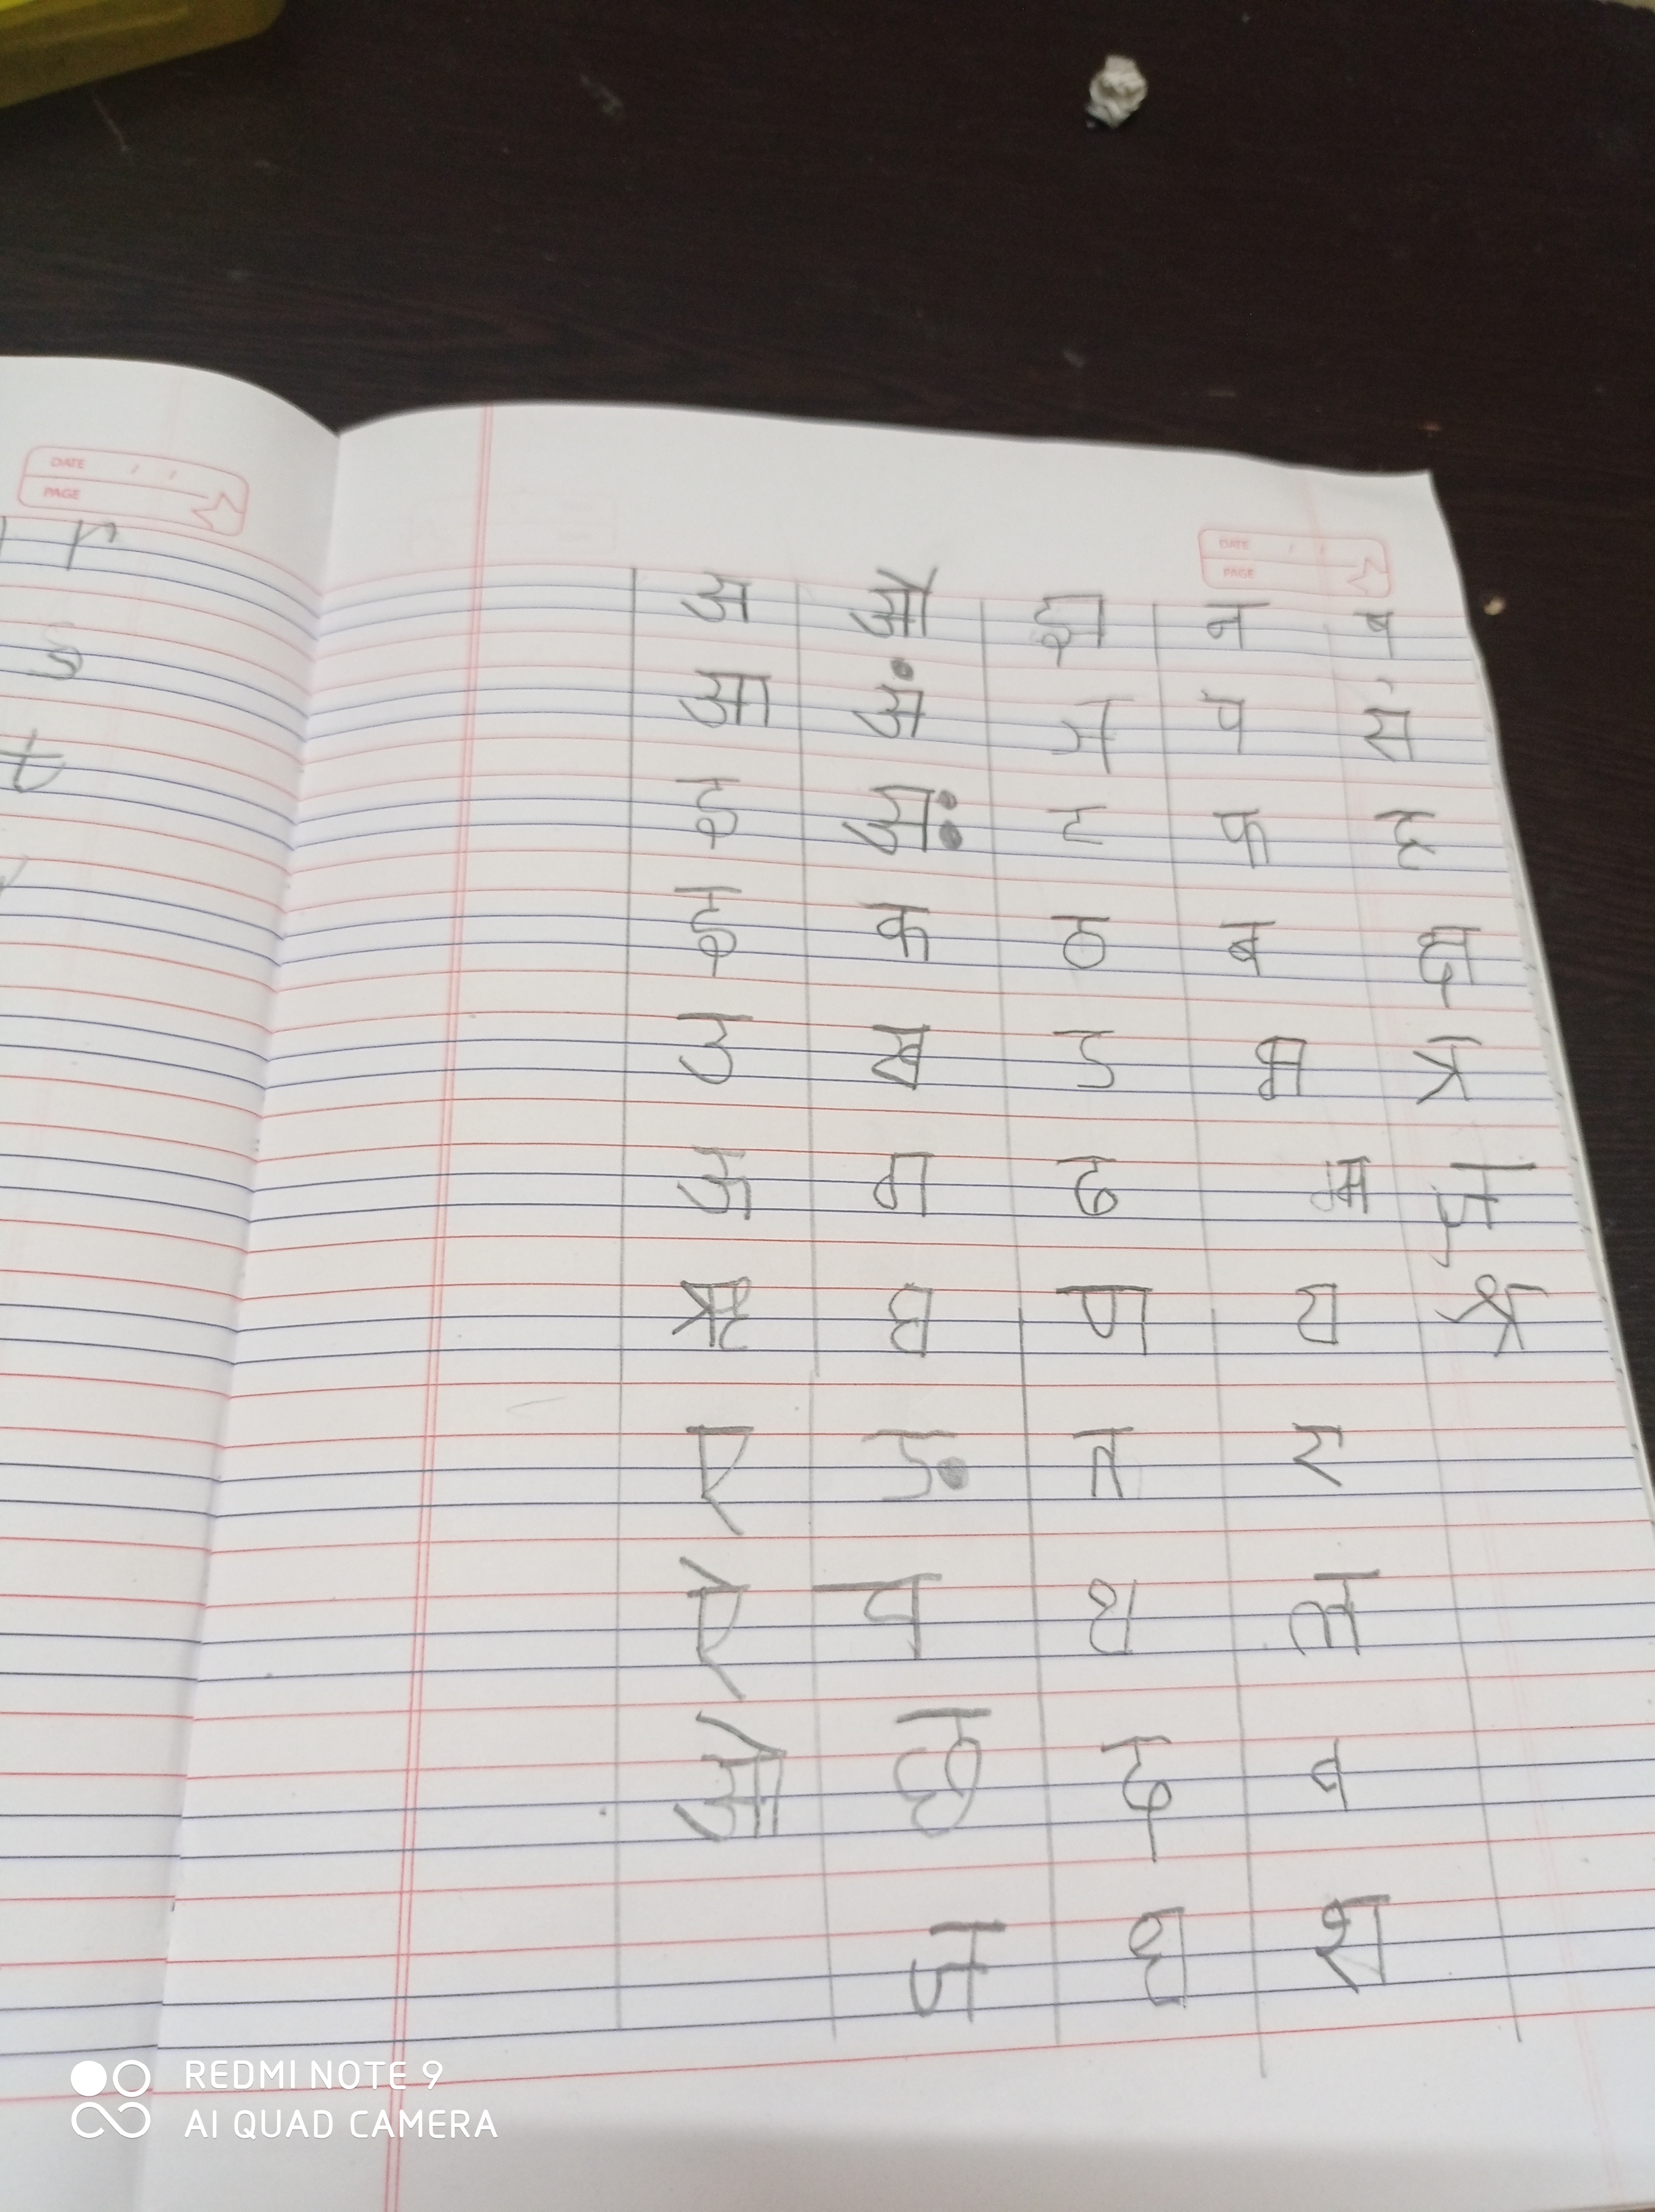 r
s
t
DATE / /
PAGE
DATE / /
PAGE
अ औ झ न ब
आ अं ञ प स
इ अः ट फ ह
इ क ठ ब क्ष
उ ख ड भ त्र
ऊ ग ढ म ज्ञ
ऋ घ ण य श्र
ए ङ त र
ऐ च थ ल
ओ छ द व
ज ध श
REDMI NOTE 9
AI QUAD CAMERA